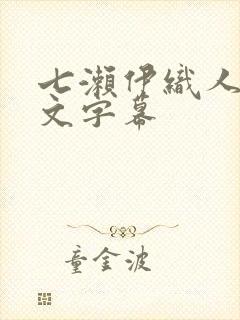 七瀬伊織人
文字幕
童金波